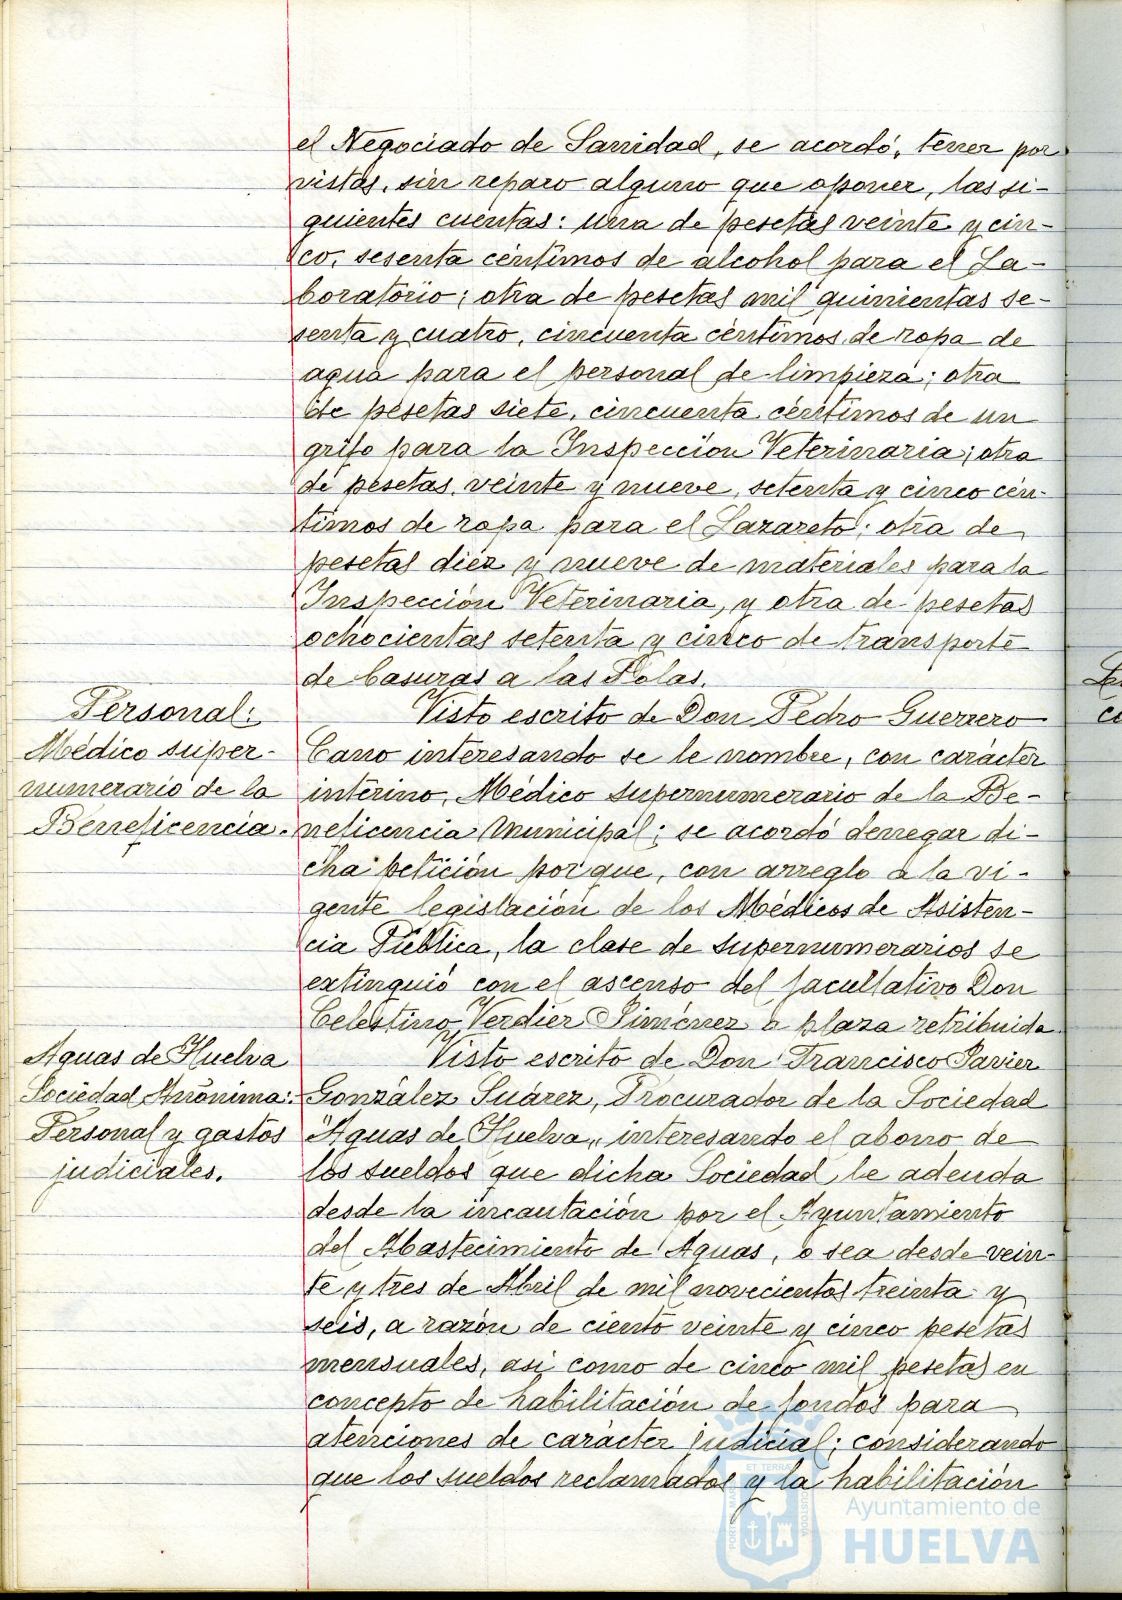 el Negociado de Sanidad, se acordó, tener por
vistas, sin reparo alguno que oponer, las si-
guientes cuentas: una de pesetas veinte y cin-
co, sesenta céntimos de alcohol para el La-
boratorio; otra de pesetas mil quinientas se-
senta y cuatro, cincuenta céntimos de ropa de
agua para el personal de limpieza; otra
de pesetas siete, cincuenta céntimos de un
grifo para la Inspección Veterinaria; otra
de pesetas veinte y nueve, setenta y cinco cén-
timos de ropa para el Lazareto; otra de
pesetas diez y nueve de materiales para la
Inspección Veterinaria, y otra de pesetas
ochocientas setenta y cinco de transporte
de basuras a las Polas.
Personal:
Médico super-
numerario de la
Beneficencia.
Visto escrito de Don Pedro Guerrero
Cano interesando se le nombre, con carácter
interino, Médico supernumerario de la Be-
neficencia Municipal; se acordó denegar di-
cha petición porque, con arreglo a la vi-
gente legislación de los Médicos de Asisten-
cia Pública, la clase de supernumerarios se
extinguió con el ascenso del facultativo Don
Celestino Verdier Jiménez a plaza retribuida.
Aguas de Huelva
Sociedad Anónima:
Personal y gastos
judiciales.
Visto escrito de Don Francisco Javier
González Suárez, Procurador de la Sociedad
"Aguas de Huelva" interesando el abono de
los sueldos que dicha Sociedad le adeuda
desde la incautación por el Ayuntamiento
del Abastecimiento de Aguas, o sea desde vein-
te y tres de Abril de mil novecientos treinta y
seis, a razón de ciento veinte y cinco pesetas
mensuales, asi como de cinco mil pesetas en
concepto de habilitación de fondos para
atenciones de carácter judicial; considerando
que los sueldos reclamados y la habilitación
Ayuntamiento de
HUELVA